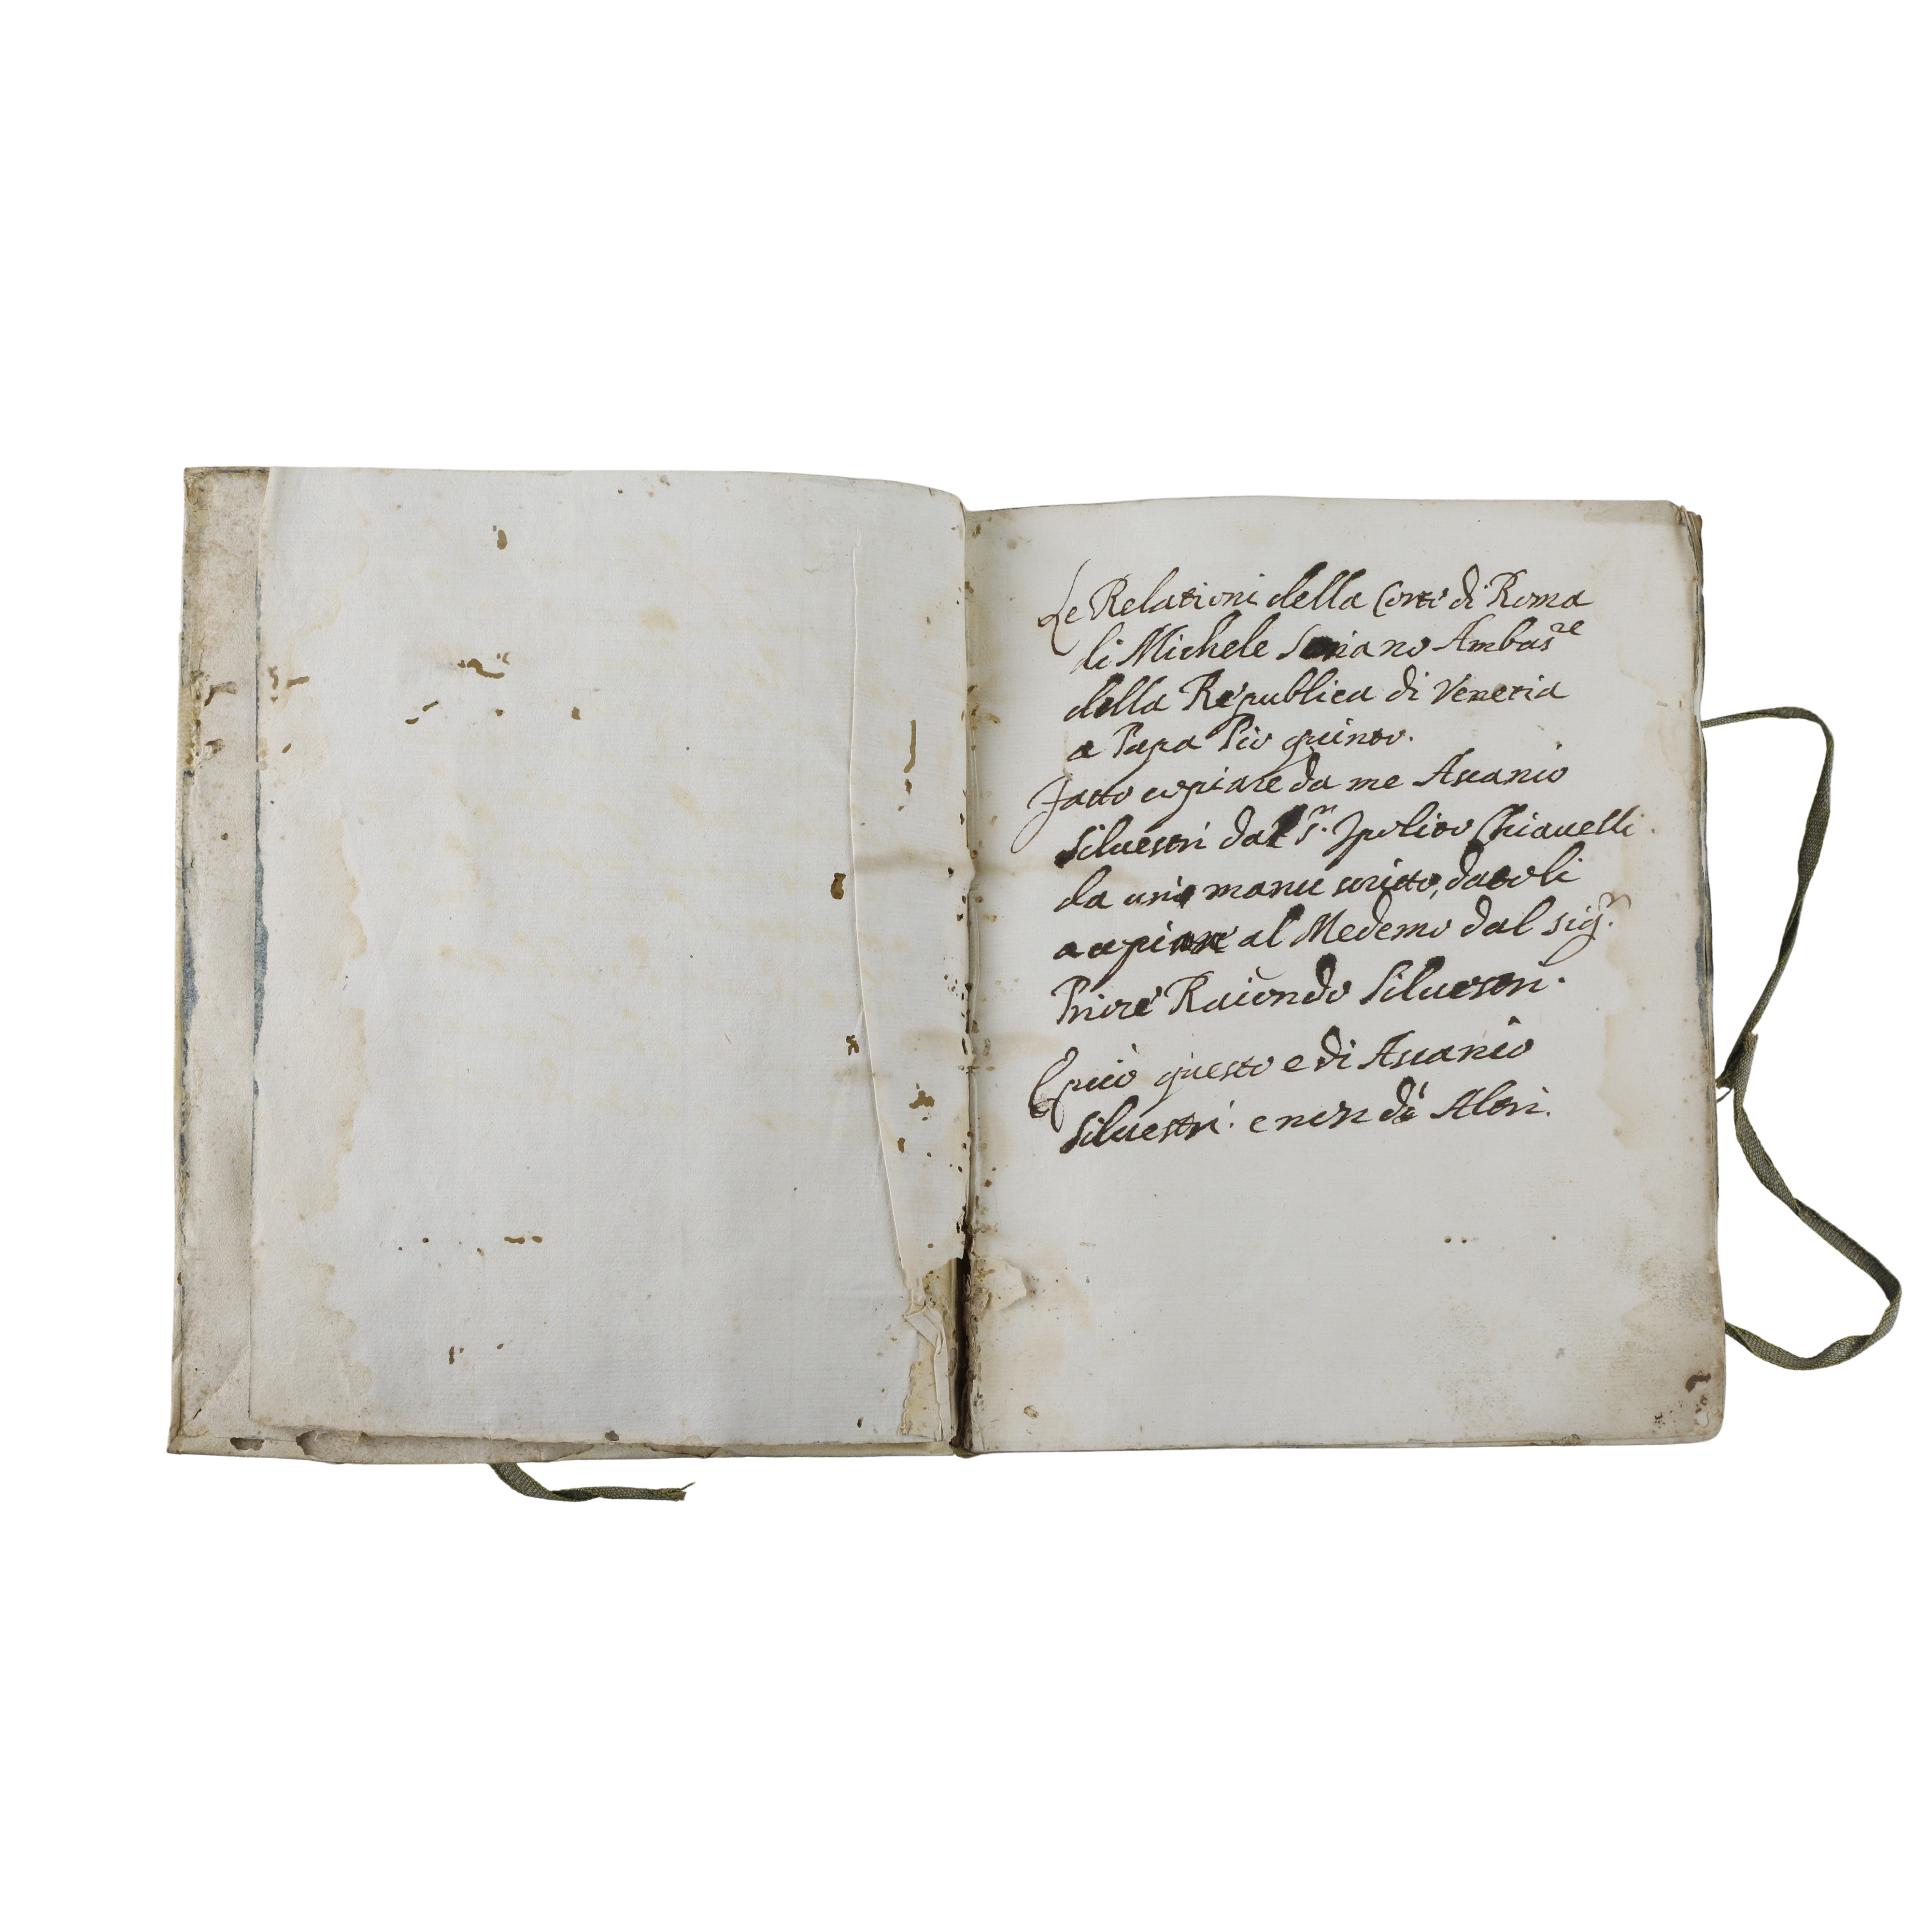 Le Relationi della Corte di Roma
di Michele Soriano Ambas.re
della Republica di Venetia
a Papa Pio quinto.
Fatto copiare da me Ascanio
Siluestri dal S.r Ipolito Chiauelli
da uno manu scritto, datoli
a copiare al Medemo dal sig.r
Priore Raimondo Siluestri.
E però questo e di Ascanio
Siluestri. e non di Altri.